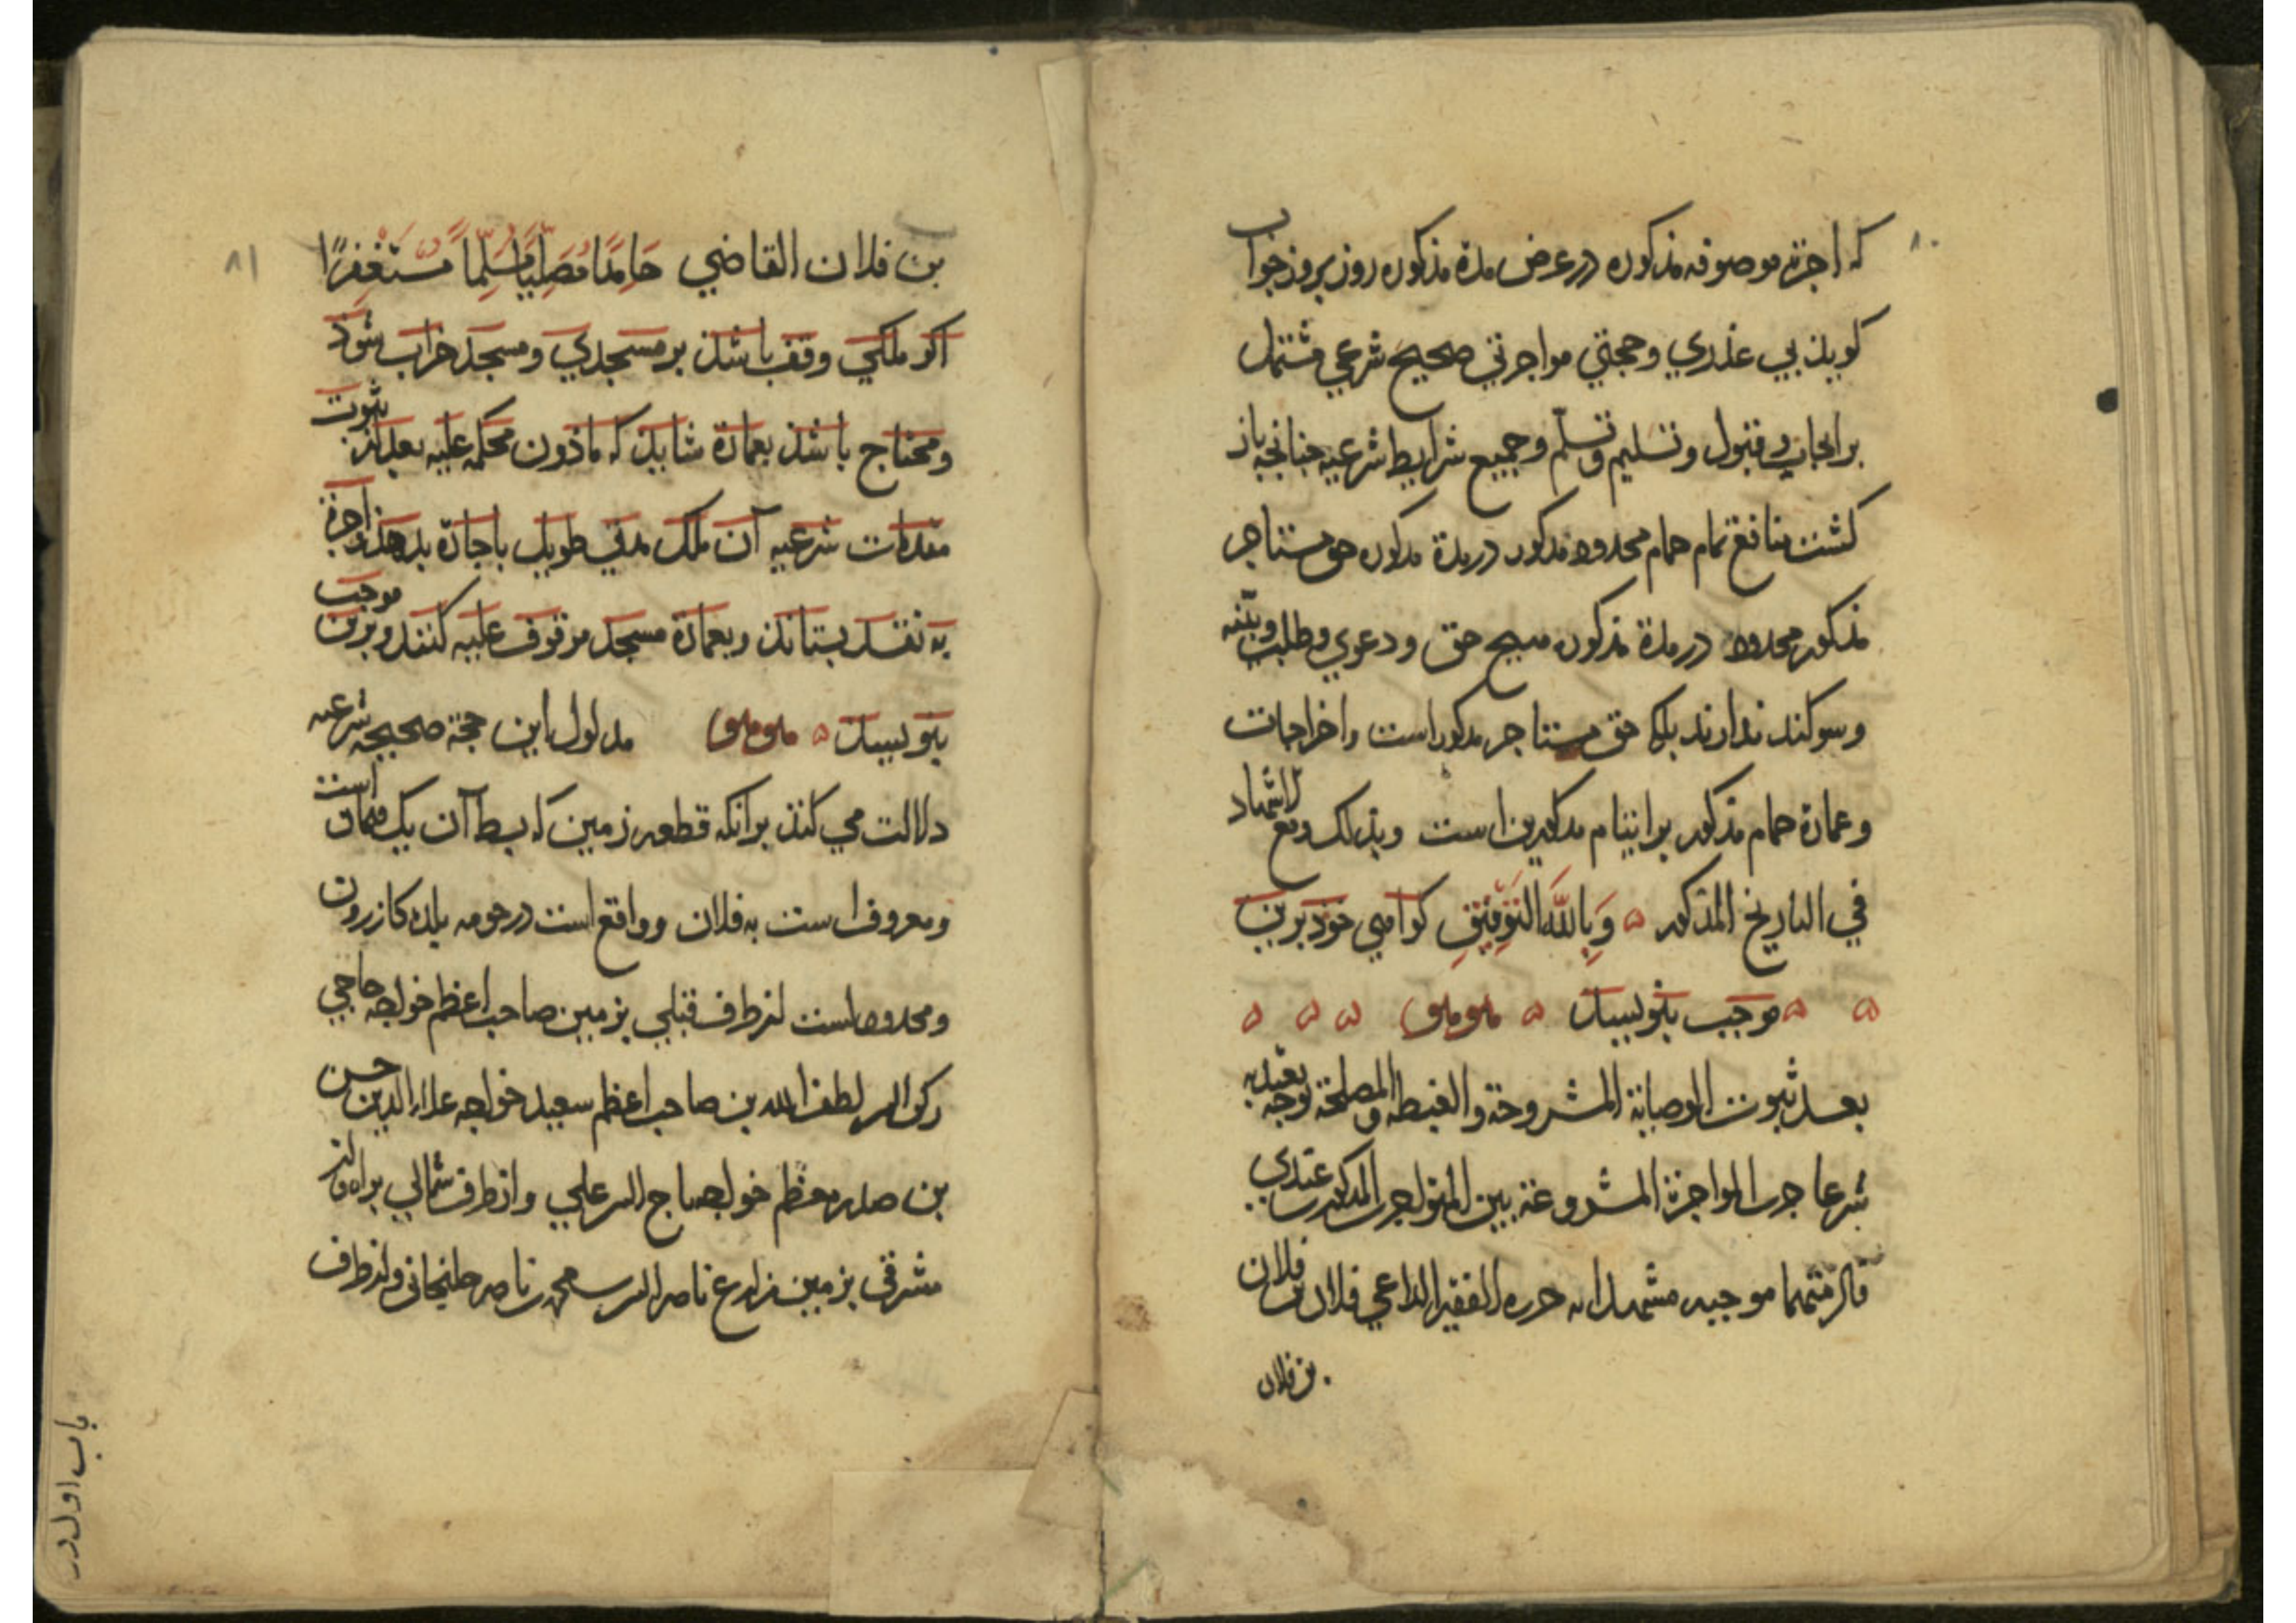 ۸۰
که اجرة موصوفه مذکوره در عرض مدة مذکوره روز بروز جواب
کویذ بی عذری وحجتی مواجرتی صحیح شرعی مشتمل
بر ایجاب و قبول و تسلیم و تسلّم وجمیع شرایط شرعیه جنانجه باز
کشت منافع تمام حمام محدود مذکور در مدة مذکوره حق مستاجر
مذکور محدود در مدة مذکوره هیچ حق و دعوی وطلب وبیّنه
وسوکند ندارند بلکا حق مستاجر مذکور است واخراجات
وعمارة حمام مذکور بر ایتام مذکورین است وبذلک وقع الاشهاد
في التاریخ المذکور وَبِاللّٰهِ التَّوفِیقِ کواهی خوذ برین
موجب بنویسد
بعد ثبوت الوصایة المشروحة والغبطه والمصلحة توجه یعتد به
شرعا جرت المواجرة المشروعة بین المتواجرین المذکورین عندی
فالزمتهما موجبه مشهدا به حرره الفقیر الداعي فلان بن فلان
بن فلان
۸۱
بن فلان القاضي حَامِدًا مُصَلِّیًا مُسَلِّمًا مُستَغفِرًا
اکر ملکی وقف باشذ بر مسجدی و مسجد خراب شوذ
ومحتاج باشذ بعمارة شایذ که ماذون محکمه علیه بعد از ثبوت
مقدمات شرعیه آن ملک مدتی طویل باجارة بدهذ واجرة
به نقد بستانذ وبعمارة مسجد موقوف علیه کنند وبرین موجب
بنویسد مدلول این حجة صحیحه شرعیه
دلالت می کنذ بر انکه قطعه زمین که بسط آن یک است
ومعروف است به فلان و واقع است در حومه بلده کازرون
ومحدود است از طرف قبلی بزمین صاحب اعظم خواجه حاجی
رکن الدین لطف الله بن صاحب اعظم سعید خواجه علاء الدین حسن
بن صدر معظم خواجه تاج الدین علي واز طرف شمالی براه واز
مشرقی بزمین مزارع ناصر الدین محمد بن ناصر واز طرف
باب اول در